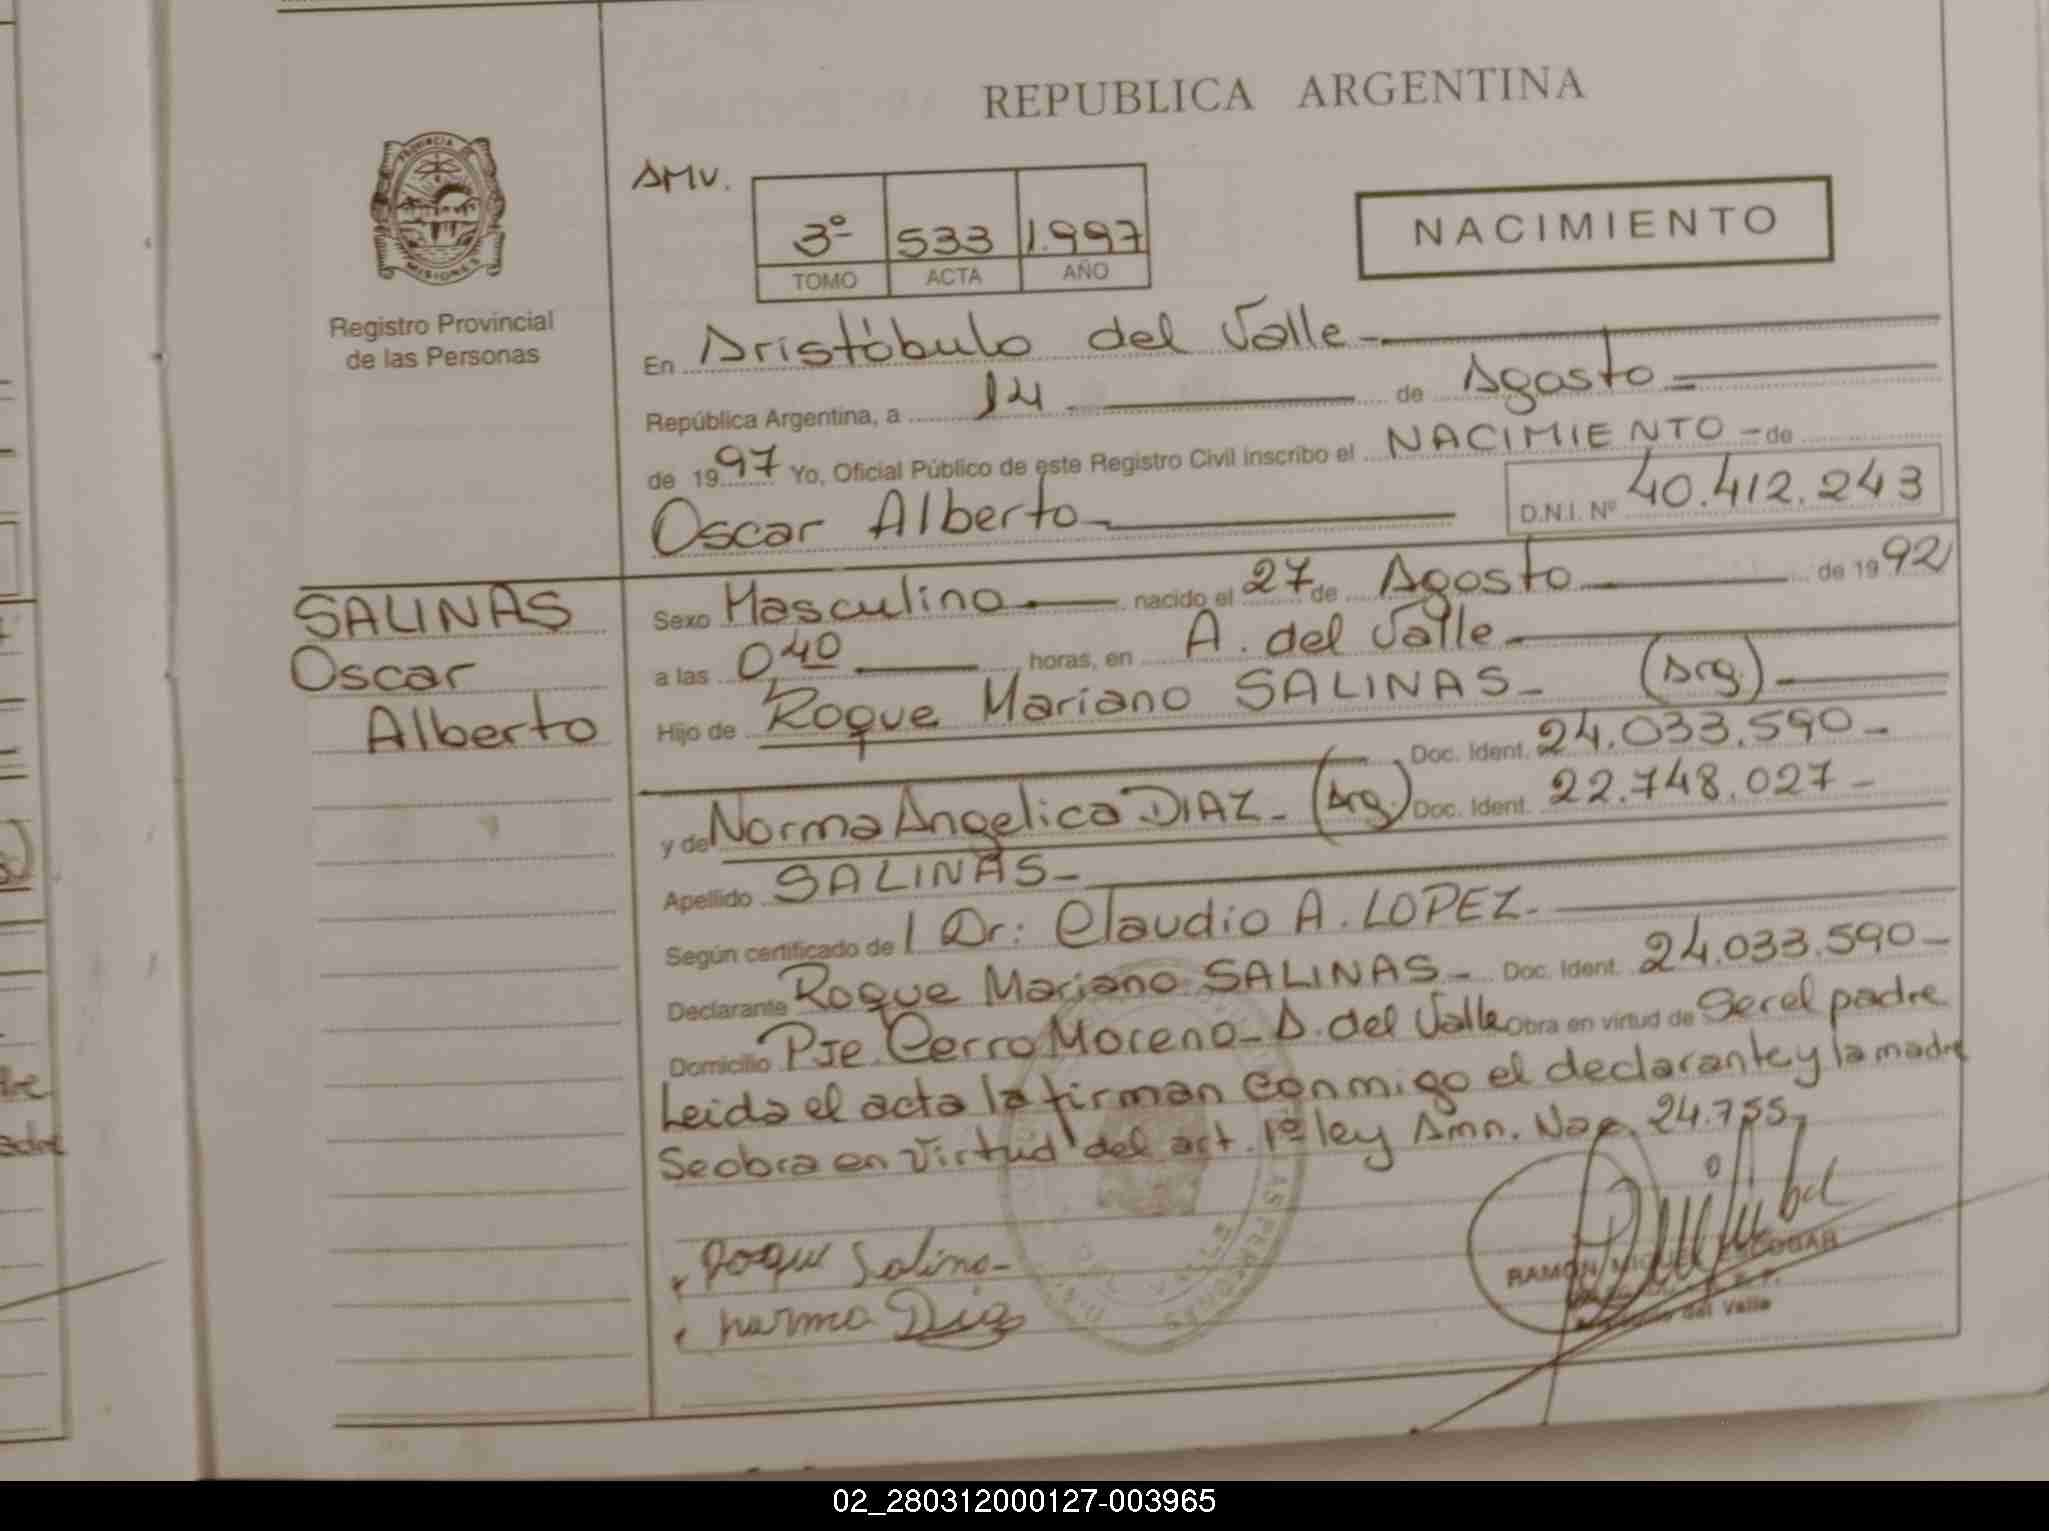 REPUBLICA ARGENTINA
PROVINCIA DE
MISIONES
Registro Provincial
de las Personas
AMV.
3º 533 1.997
TOMO ACTA AÑO
NACIMIENTO
En Aristóbulo del Valle
República Argentina, a 14 de Agosto
de 1997 Yo, Oficial Público de este Registro Civil inscribo el NACIMIENTO - de
Oscar Alberto D.N.I. Nº 40.412.243
SALINAS
Oscar
Alberto
Sexo Masculino nacido el 27 de Agosto de 1992
a las 0,40 horas, en A. del Valle
Hijo de Roque Mariano SALINAS - (Arg.)
Doc. Ident. 24.033.590 -
y de Norma Angelica DIAZ - (Arg.) Doc. Ident. 22.748.027 -
Apellido SALINAS -
Según certificado de l Dr: Claudio A. LOPEZ -
Declarante Roque Mariano SALINAS - Doc. Ident. 24.033.590 -
Domicilio Pje. Cerro Moreno - A. del Valle Obra en virtud de ser el padre
Leida el acta la firman conmigo el declarante y la madre
Se obra en virtud del art. 1º ley Amn. Nac. 24.755
Roque Salina
norma Diaz
RAMON MIGUEL ESCOBAR
del Valle
02_280312000127-003965